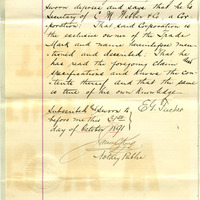 sworn deposes and says that he is
Secretary of C. M. & Co. a Cor
poration. That said Corporation is
the exclusive owner of the Trade
Mark and name hereinbefore men
tioned and described. That he
has read the foregoing claim and
specifications and knows the con
tents thereof and that the same
is true of his own knowledge
Subscribed & Sworn to
before me this
day of October 1891
Notary Public